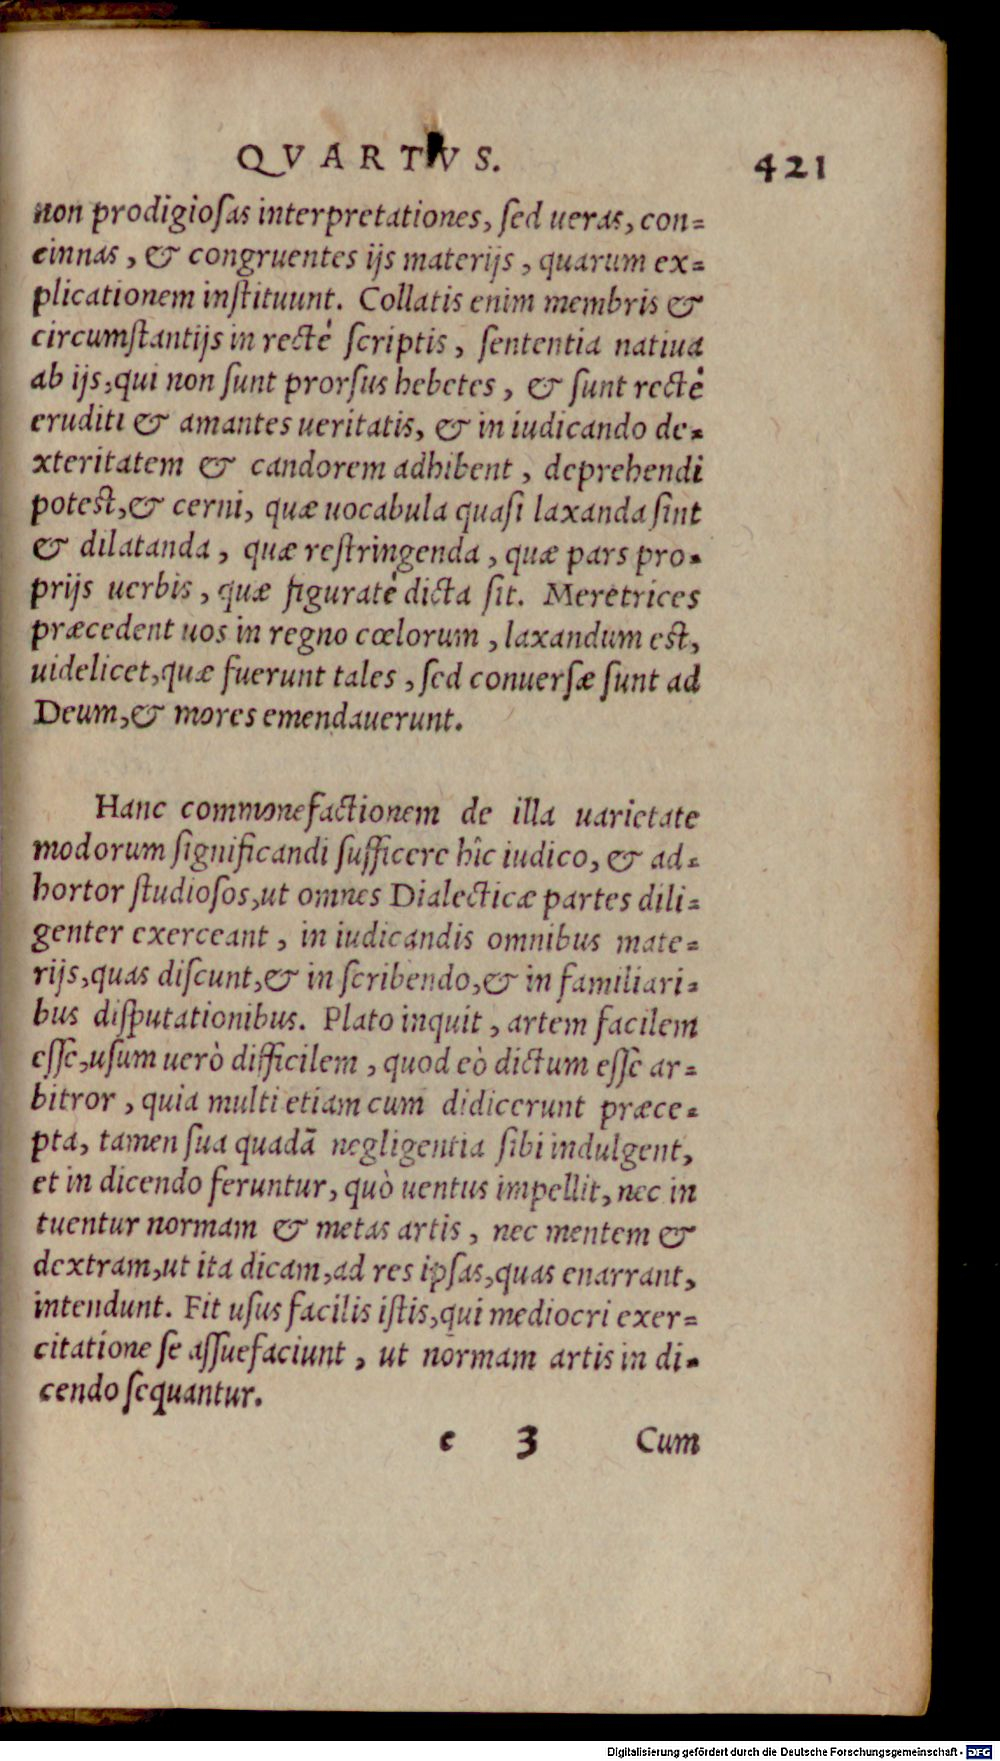 QVARTVS. 421
non prodigioſas interpretationes, ſed ueras, con=
cinnas, & congruentes ijs materijs, quarum ex=
plicationem inſtituunt. Collatis enim membris &
circumſtantijs in rectè ſcriptis, ſententia natiua
ab ijs, qui non ſunt prorſus hebetes, & ſunt rectè
eruditi & amantes ueritatis, & in iudicando de=
xteritatem & candorem adhibent, deprehendi
poteſt, & cerni, quæ uocabula quaſi laxanda ſint
& dilatanda, quæ reſtringenda, quæ pars pro=
prijs uerbis, quæ figuratè dicta ſit. Meretrices
præcedent uos in regno cœlorum, laxandum eſt,
uidelicet, quæ fuerunt tales, ſed conuerſæ ſunt ad
Deum, & mores emendauerunt.
Hanc commonefactionem de illa uarietate
modorum ſignificandi ſufficere hîc iudico, & ad=
hortor ſtudioſos, ut omnes Dialecticæ partes dili=
genter exerceant, in iudicandis omnibus mate=
rijs, quas diſcunt, & in ſcribendo, & in familiari=
bus diſputationibus. Plato inquit, artem facilem
eſſe, uſum uerò difficilem, quod eò dictum eſſe ar=
bitror, quia multi etiam cum didicerunt præce=
pta, tamen ſua quadã negligentia ſibi indulgent,
et in dicendo feruntur, quò uentus impellit, nec in
tuentur normam & metas artis, nec mentem &
dextram, ut ita dicam, ad res ipſas, quas enarrant,
intendunt. Fit uſus facilis iſtis, qui mediocri exer=
citatione ſe aſſuefaciunt, ut normam artis in di=
cendo ſequantur.
e 3 Cum
Digitalisierung gefördert durch die Deutsche Forschungsgemeinschaft - DFG